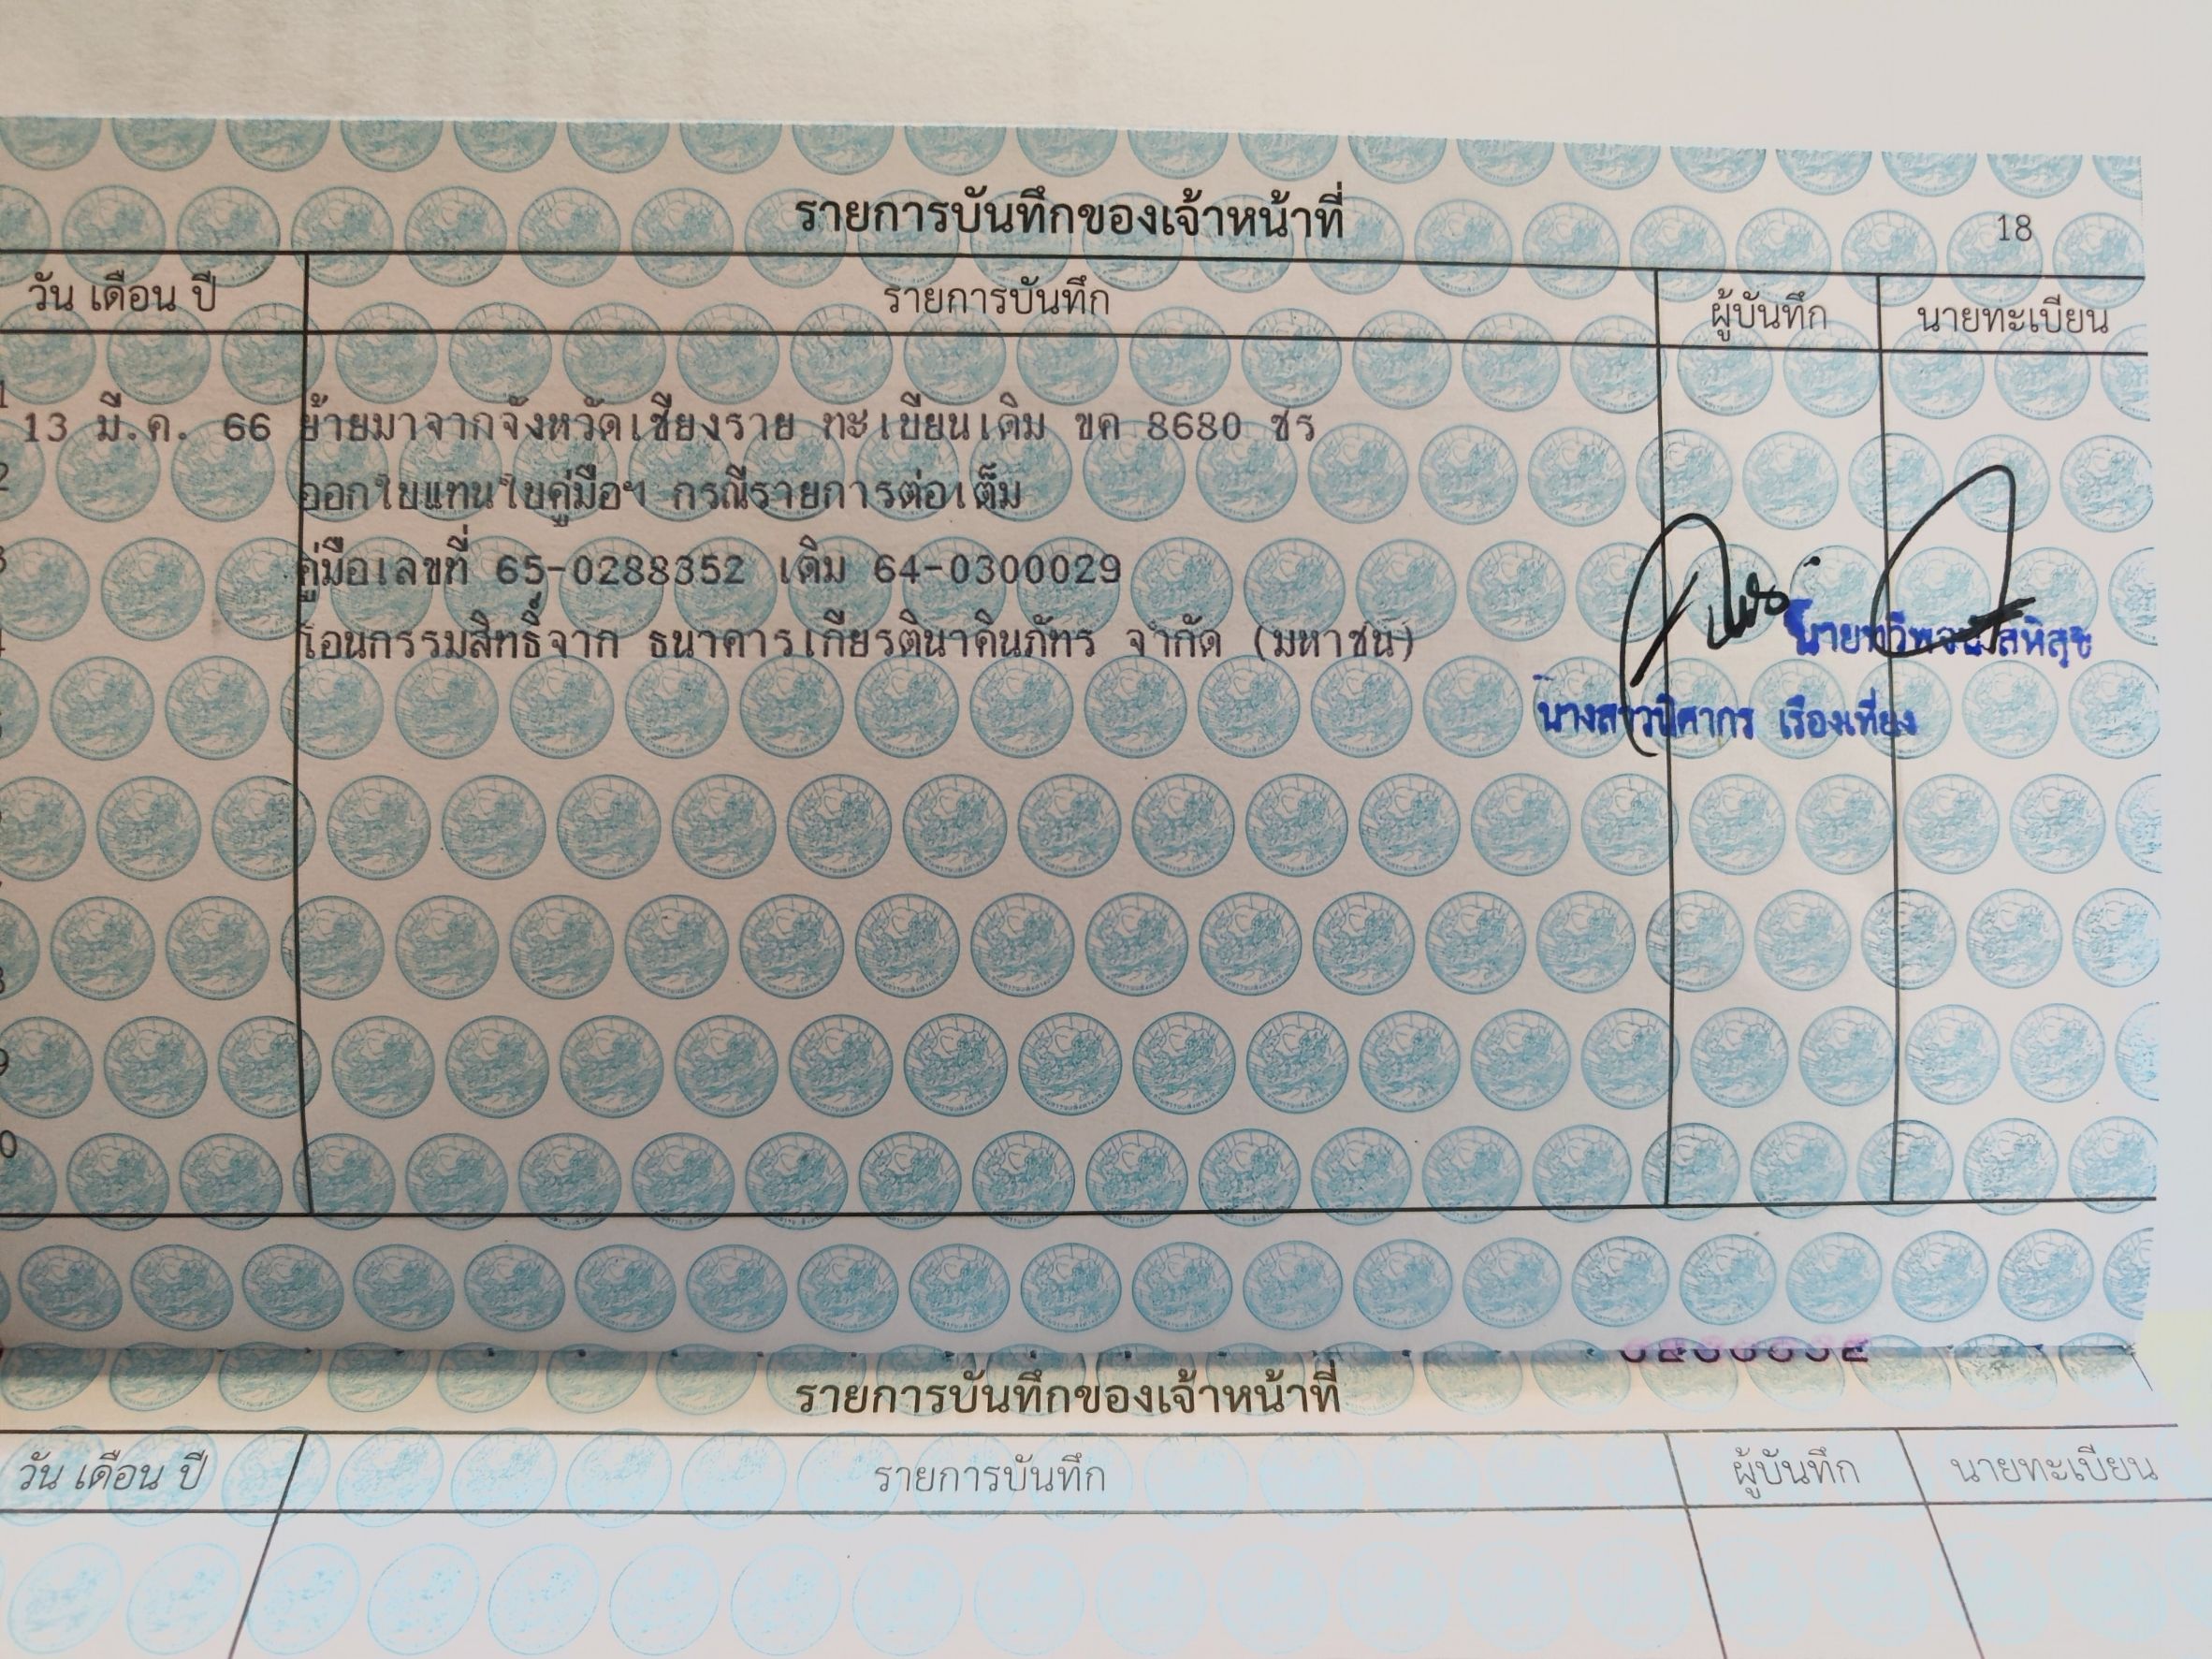 รายการบันทึกของเจ้าหน้าที่ 18
วัน เดือน ปี รายการบันทึก ผู้บันทึก นายทะเบียน
13 มี.ค. 66 ย้ายมาจากจังหวัดเชียงราย ทะเบียนเดิม ขค 8680 ชร
ออกใบแทนใบคู่มือฯ กรณีรายการต่อเต็ม
คู่มือเลขที่ 65-0288352 เดิม 64-0300029
โอนกรรมสิทธิ์จาก ธนาคารเกียรตินาคินภัทร จำกัด (มหาชน)
นางสาวนิศากร เรืองเที่ยง
รายการบันทึกของเจ้าหน้าที่
วัน เดือน ปี รายการบันทึก ผู้บันทึก นายทะเบียน